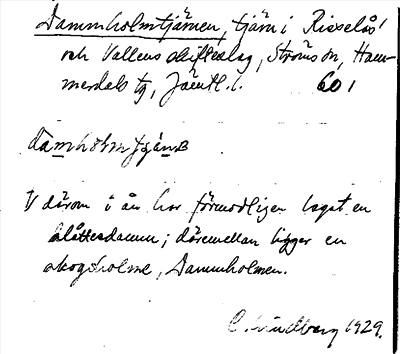 Dammholmtjärnen, tjärn i Risselås'
och Vallens skifteslag, Ströms sn, Ham-
merdals tg, Jämtl. l. 601
V därom i ån har förmodligen legat en
slåtterdamm; däremellan ligger en
skogsholme, Dammholmen.
C. Lindberg 1929.